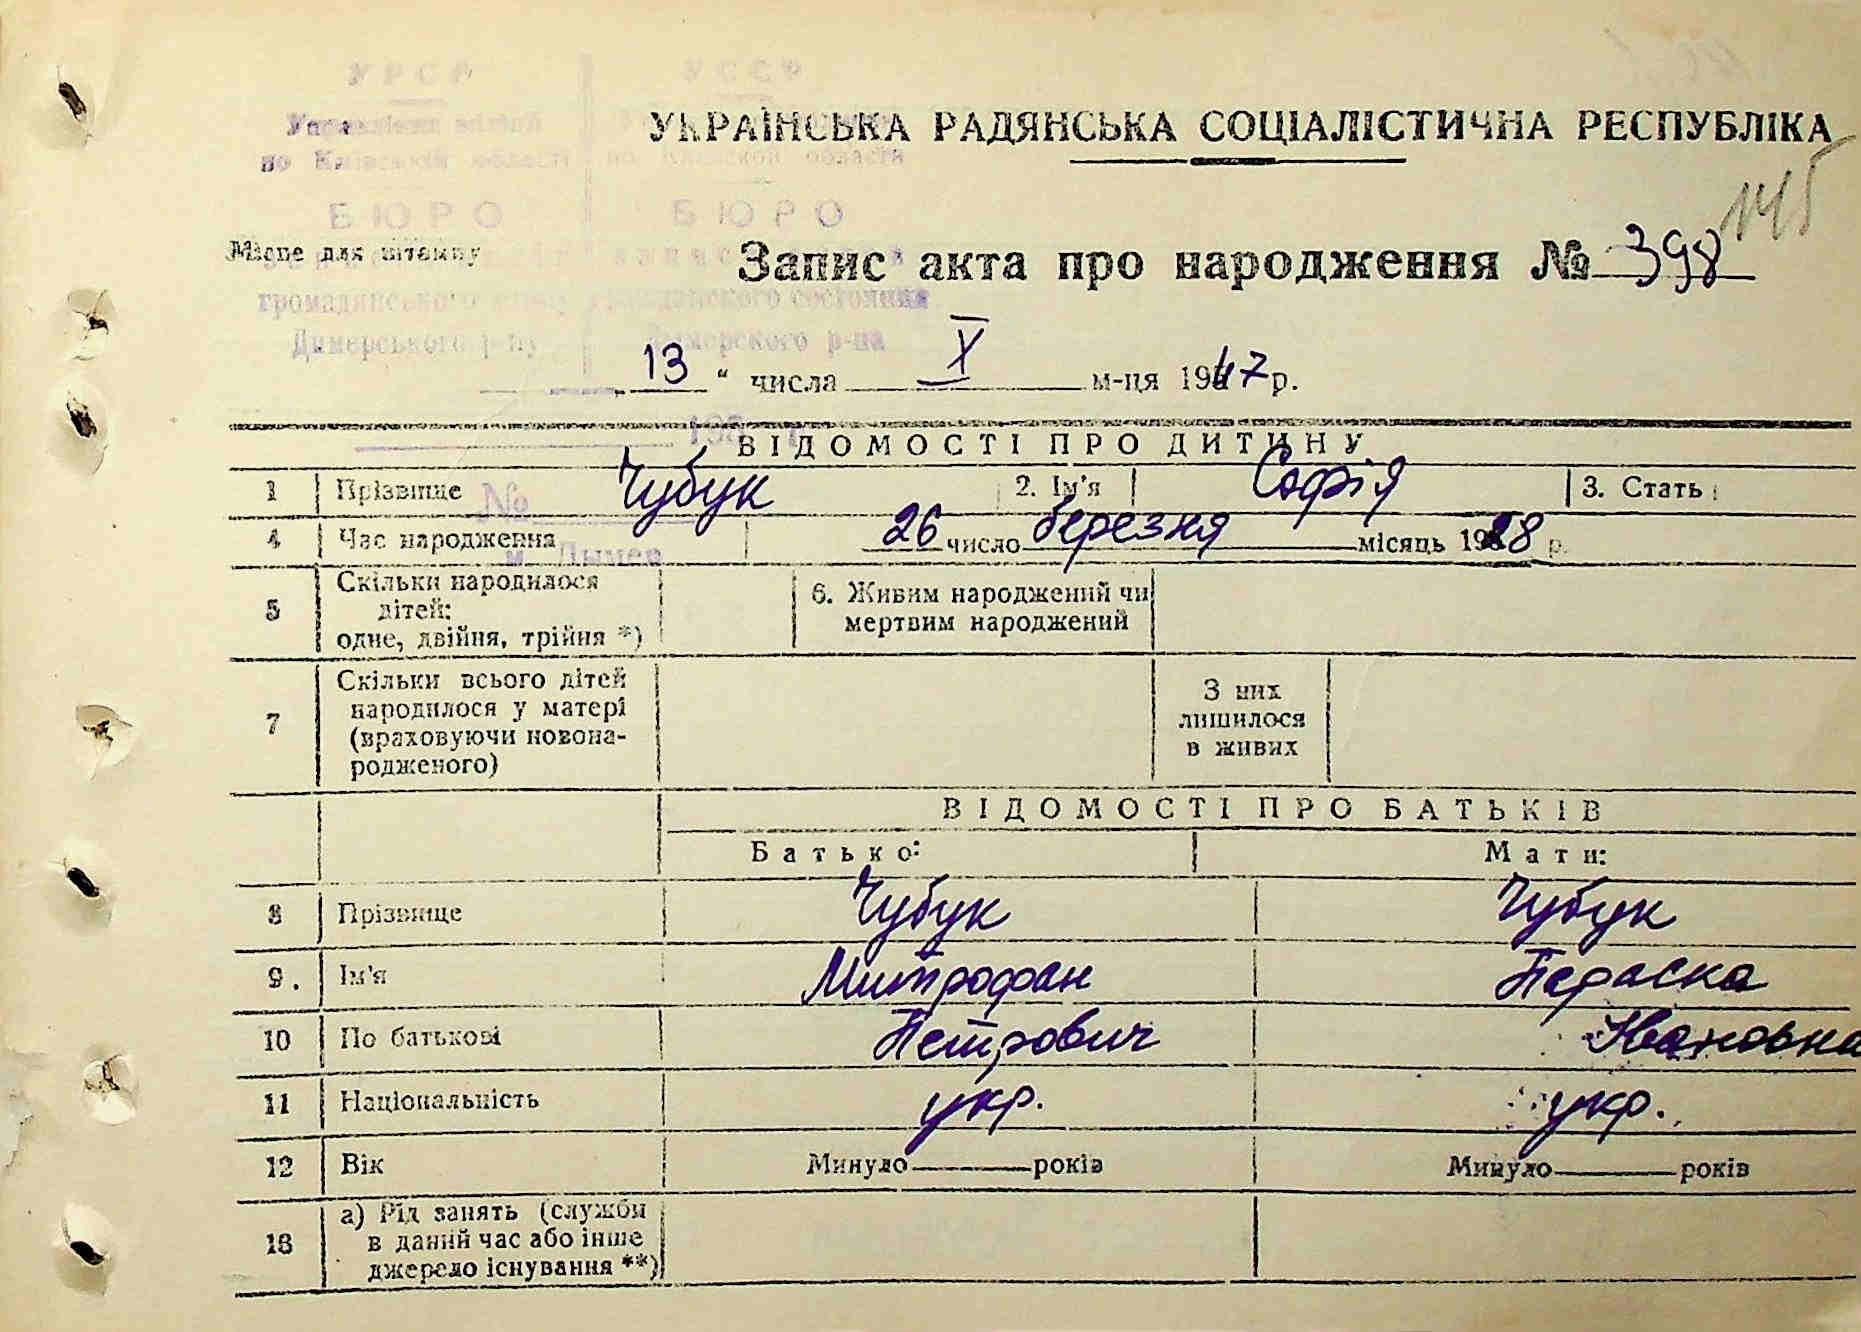 УРСР УССР
Управління міліції
по Київській області по Киевской области
УКРАЇНСЬКА РАДЯНСЬКА СОЦІАЛІСТИЧНА РЕСПУБЛІКА
145
БЮРО БЮРО
Місце для штампу
Запис акта про народження № 398
громадянського стану гражданского состояния
Димерського р-ну Дымерского р-на
„ 13 “ числа X м-ця 1947 р.
193
ВІДОМОСТІ ПРО ДИТИНУ
1 Прізвище Чубук 2. Ім'я Софія 3. Стать
№
4 Час народження 26 число березня місяць 1928 р.
м. Дымер
5 Скільки народилося дітей: одне, двійня, трійня *) 6. Живим народжений чи мертвим народжений
7 Скільки всього дітей народилося у матері (враховуючи новона-родженого) З них лишилося в живих
ВІДОМОСТІ ПРО БАТЬКІВ
Батько: Мати:
8 Прізвище Чубук Чубук
9. Ім'я Митрофан Параска
10 По батькові Петрович Ивановна
11 Національність укр. укр.
12 Вік Минуло років Минуло років
13 а) Рід занять (служби в даний час або інше джерело існування **)